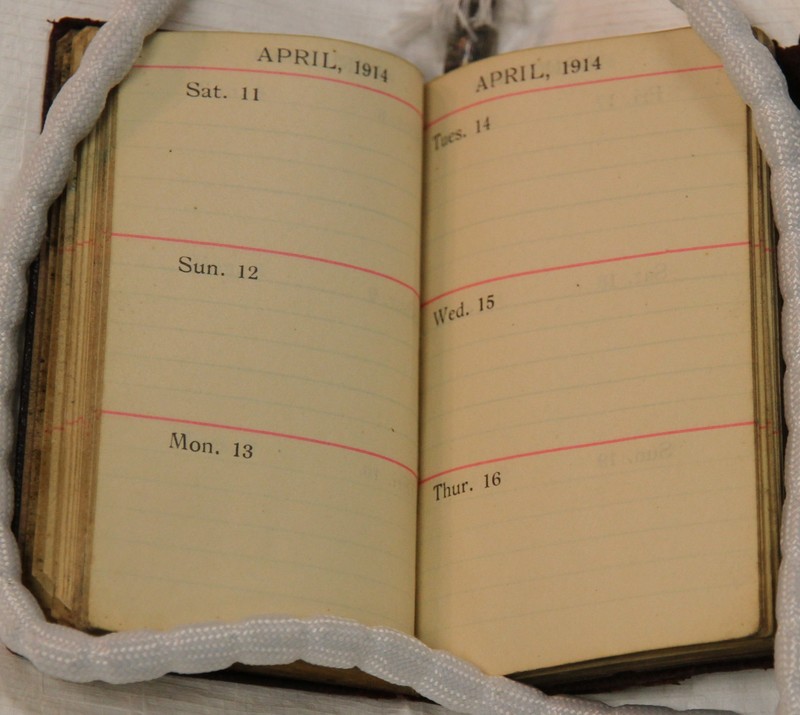 APRIL, 1914
Sat. 11
Sun. 12
Mon. 13
APRIL, 1914
Tues. 14
Wed. 15
Thur. 16